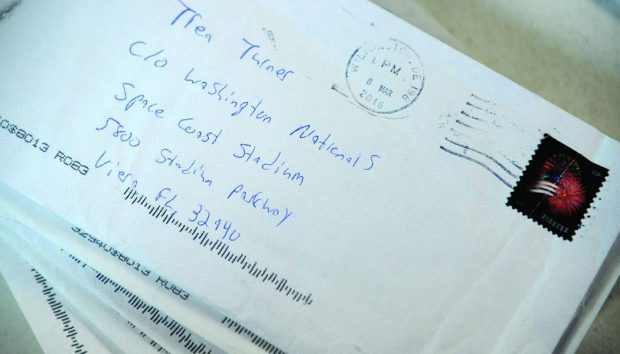 Trea Turner
C/o Washington Nationals
Space Coast Stadium
5800 Stadium Parkway
Viera FL 32940
1 PM
8 MAR
2016
USA
FOREVER
0$8013 R083
32940$8013 R083